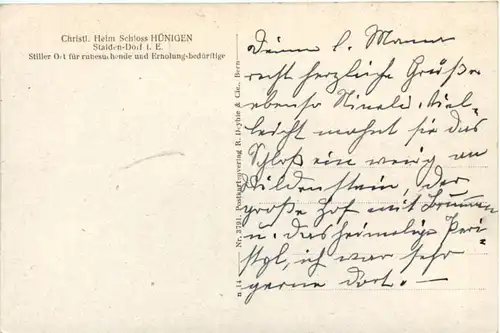 Christl. Heim Schloss HÜNIGEN
Stalden-Dorf i. E.
Stiller Ort für ruhesuchende und Erholung-bedürftige
Nr. 3781. Postkartenverlag R. Deyhle & Cie., Bern
Deiner l. Mama
recht herzliche Grüße
ebenso Viel-
leicht mahnt sie das
Schloß ein wenig an
Wildenstein, der
große Hof mit Brunnen
u. das heimelige Peri-
styl, ich war sehr
gerne dort. —